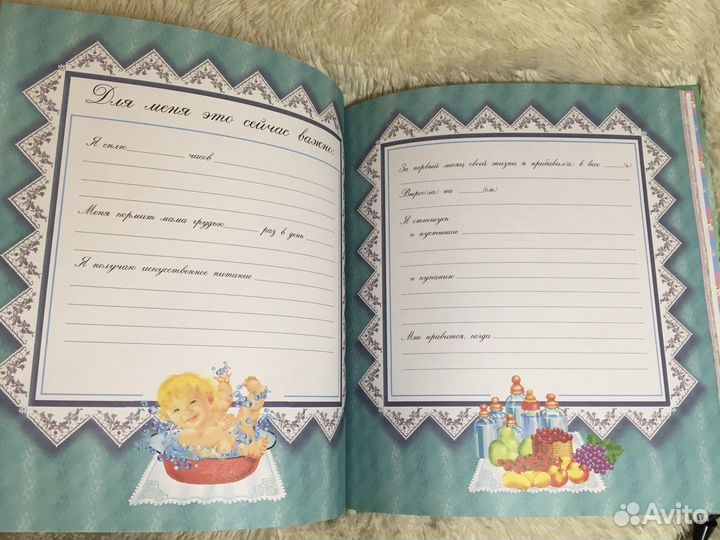 Для меня это сейчас важно:
Я сплю часов
Меня кормит мама грудью раз в день
Я получаю искуственное питание
За первый месяц своей жизни я прибавил(а) в весе (г)
Вырос(ла) на (см)
Я отношусь
к пустышке
к купанию
Мне нравится, когда
Avito